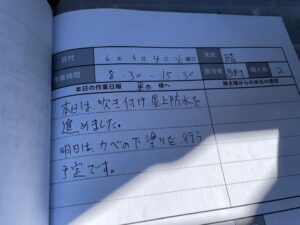 日付 6年 6月 4日 火曜日 天気 晴
作業時間 8:30 - 15:30 担当者 職人数 2
本日の作業日報 様へ 施主様からの本日の感想
本日は、吹き付け屋上防水を
進めました。
明日は、カベの下塗りを行う
予定です。